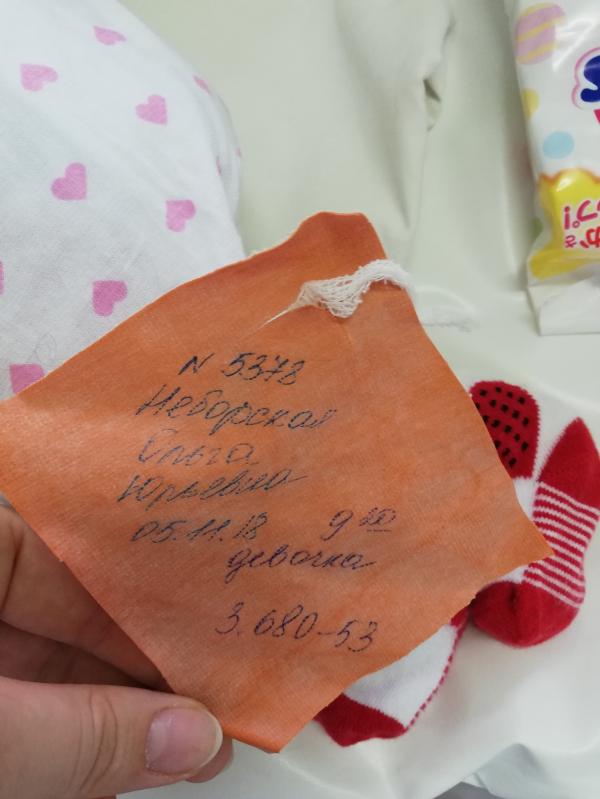 N 5378
Неборская
Ольга
Юрьевна
05.11.18 9 00
девочка
3.680-53